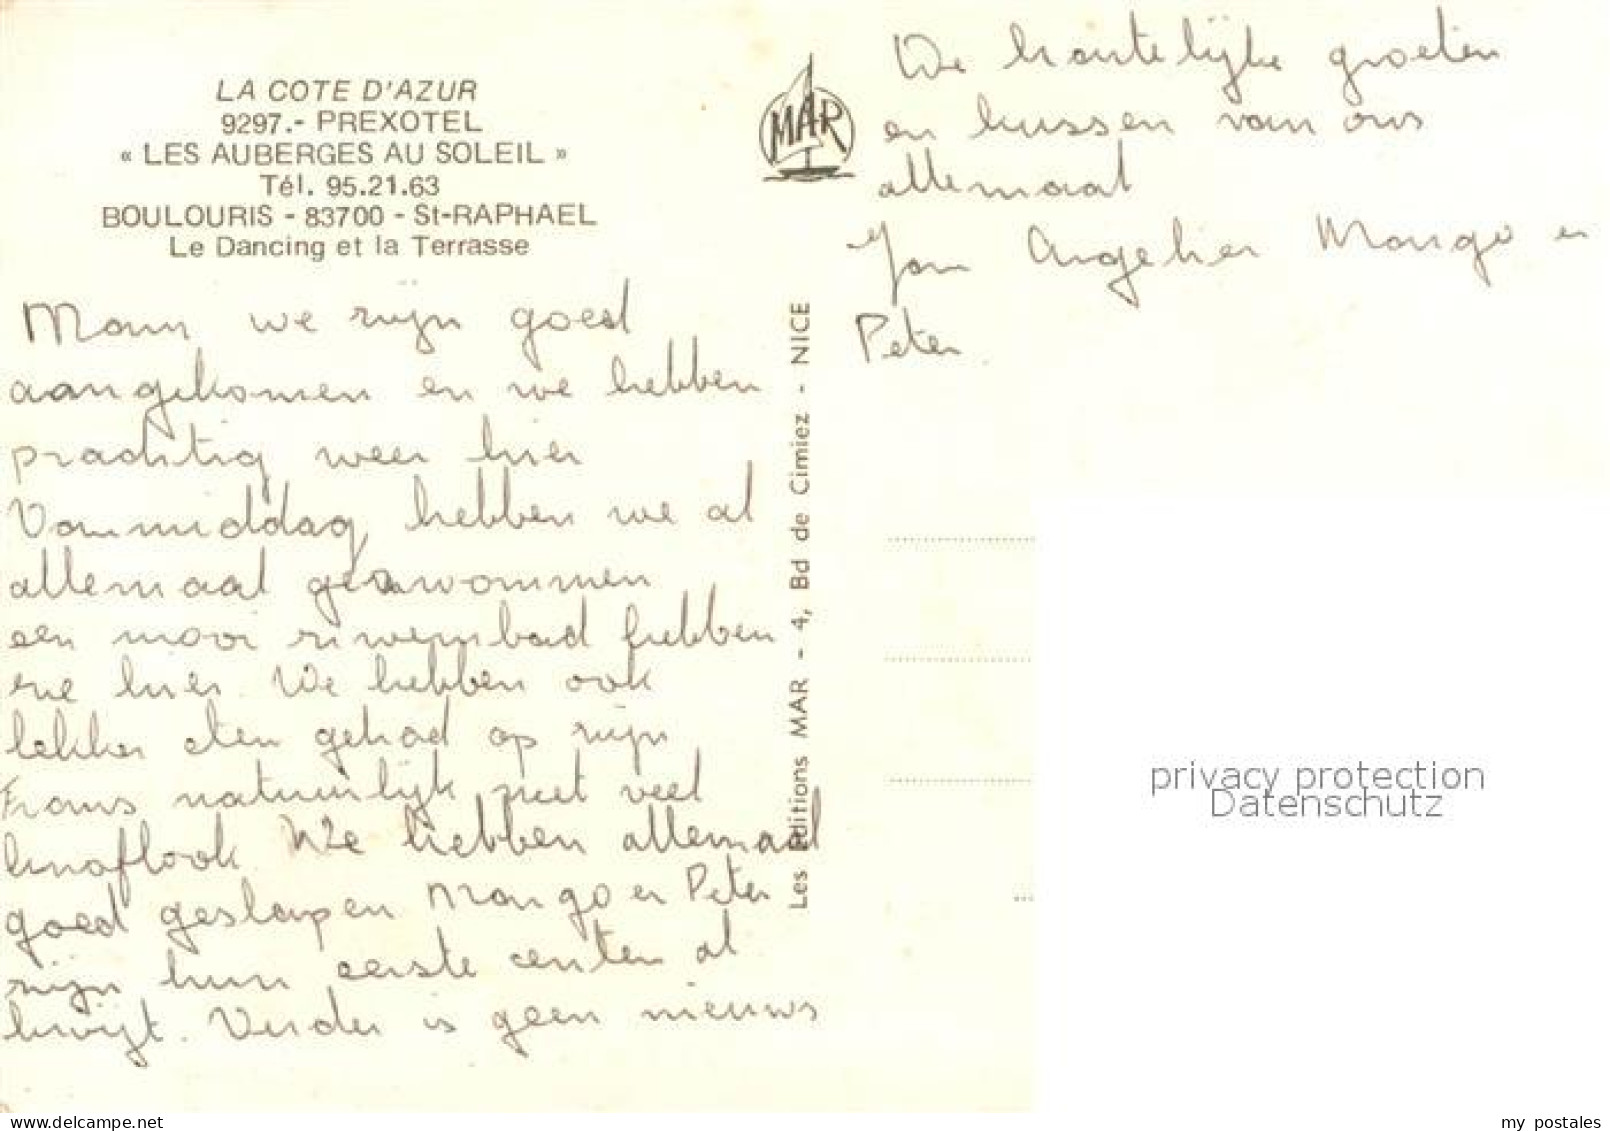 LA COTE D'AZUR
9297.- PREXOTEL
« LES AUBERGES AU SOLEIL »
Tél. 95.21.63
BOULOURIS - 83700 - St-RAPHAEL
Le Dancing et la Terrasse
Mam we zijn goed
aangekomen en we hebben
prachtig weer hier
Vanmiddag hebben we al
allemaal gezwommen
een mooi zwembad hebben
ze hier. We hebben ook
lekker eten gehad op zijn
Frans natuurlijk met veel
knoflook We hebben allemaal
goed geslapen Margo en Peter
zijn hun eerste centen al
kwijt. Verder is geen nieuws
MAR
Les Editions MAR - 4, Bd de Cimiez - NICE
De hartelijke groeten
en kussen van ons
allemaal
Jan Margo en
Peter
privacy protection
Datenschutz
my postales